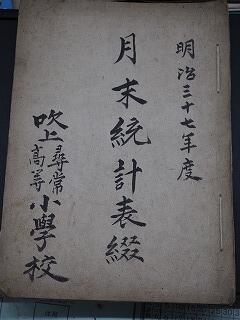 明治三十七年度
月末統計表綴
吹上尋常高等小學校